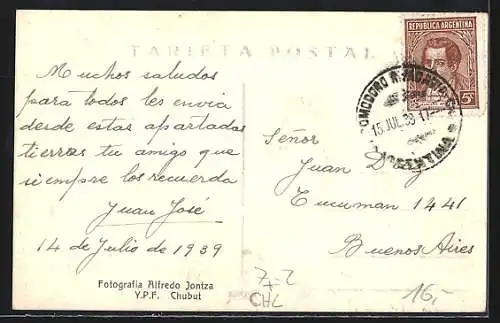 TARJETA POSTAL
REPUBLICA ARGENTINA
5c
COMODORO RIVADAVIA
15 JUL 39 17
ARGENTINA
Muchos saludos
para todos les envia
desde estas apartadas
tierras tu amigo que
siempre los recuerda
Juan José
14 de Julio de 1939
Fotografía Alfredo Jontza
Y.P.F. Chubut
Señor
Juan
Tucuman 1441
Buenos Aires
7-2
CHL
16,-